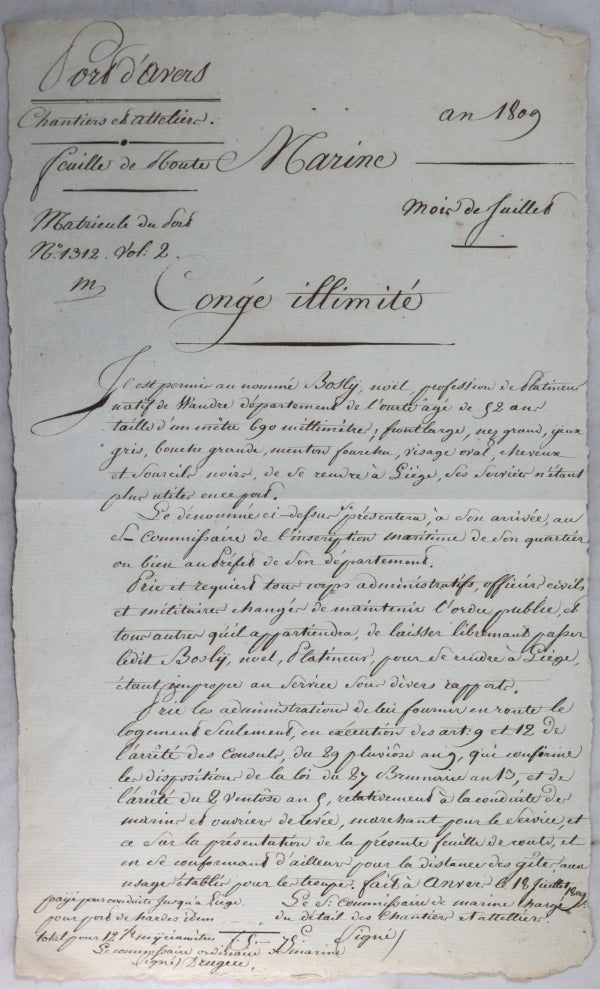 Port d'Anvers
Chantiers et atteliers.
an 1809
feuille de Route
Marine
Mois de Juillet
Matricule du Port
N.o 1312. Vol: 2.
m
Congé illimité
Il est permis au nommé Boslÿ, noël, profession de Platineur
natif de Wandre département de l'ourte âgé de 52 ans
taille d'un mètre 690 millimètre; front large, nez grand, yeux
gris, bouche grande, menton fourchu, visage oval, cheveux
et sourcils noirs, de se rendre à Liège, ses services n'étant
plus utiles en ce port.
Le dénommé ci-dessus se présentera, à son arrivée, au
S.r Commissaire de l'inscription maritime de son quartier
ou bien au Préfet de son département.
Prie et requiert tous corps administratifs, officiers civils
et militaires chargés de maintenir l'ordre public, et
tous autres qu'il appartiendra, de laisser librement passer
ledit Boslÿ, noel, Platineur, pour se rendre à Liège,
étant impropre au service sous divers rapports.
Prie les administrations de lui fournir en route le
logement seulement, en exécution des art: 9 et 12 de
l'arrêté des Consuls, du 29 pluviôse an 9, qui confirme
les dispositions de la loi du 27 Brumaire an 13, et de
l'arrêté du 2 Ventôse an 5, relativement à la conduite des
marins et ouvriers de levée, marchant pour le service, et
ce sur la présentation de la présente feuille de route, et
en se conformant d'ailleurs pour la distance des gîtes, aux
usages établis pour les troupes. fait à Anvers le 18 Juillet 1809.
payé pour conduite jusqu'à Liège.
Le S.r Commissaire de marine chargé
pour port de hardes idem
du détail des Chantiers et atteliers.
total pour 12 myriamètres
Signé
Le commissaire ordinaire de marine
Signé)